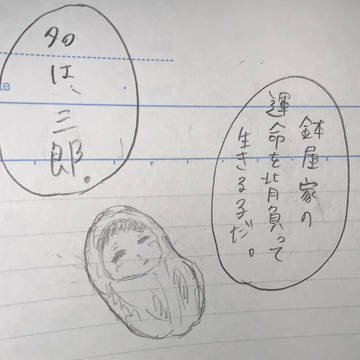 鉢屋家の
運命を背負って
生きる子だ。
名は、
三郎。
te